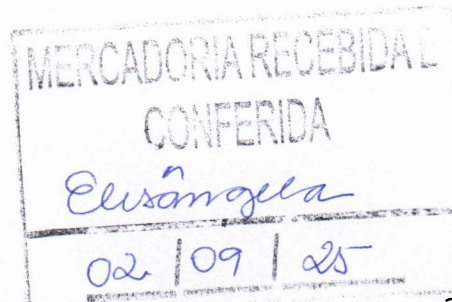 MERCADORIA RECEBIDA E
CONFERIDA
Elisângela
02 | 09 | 25